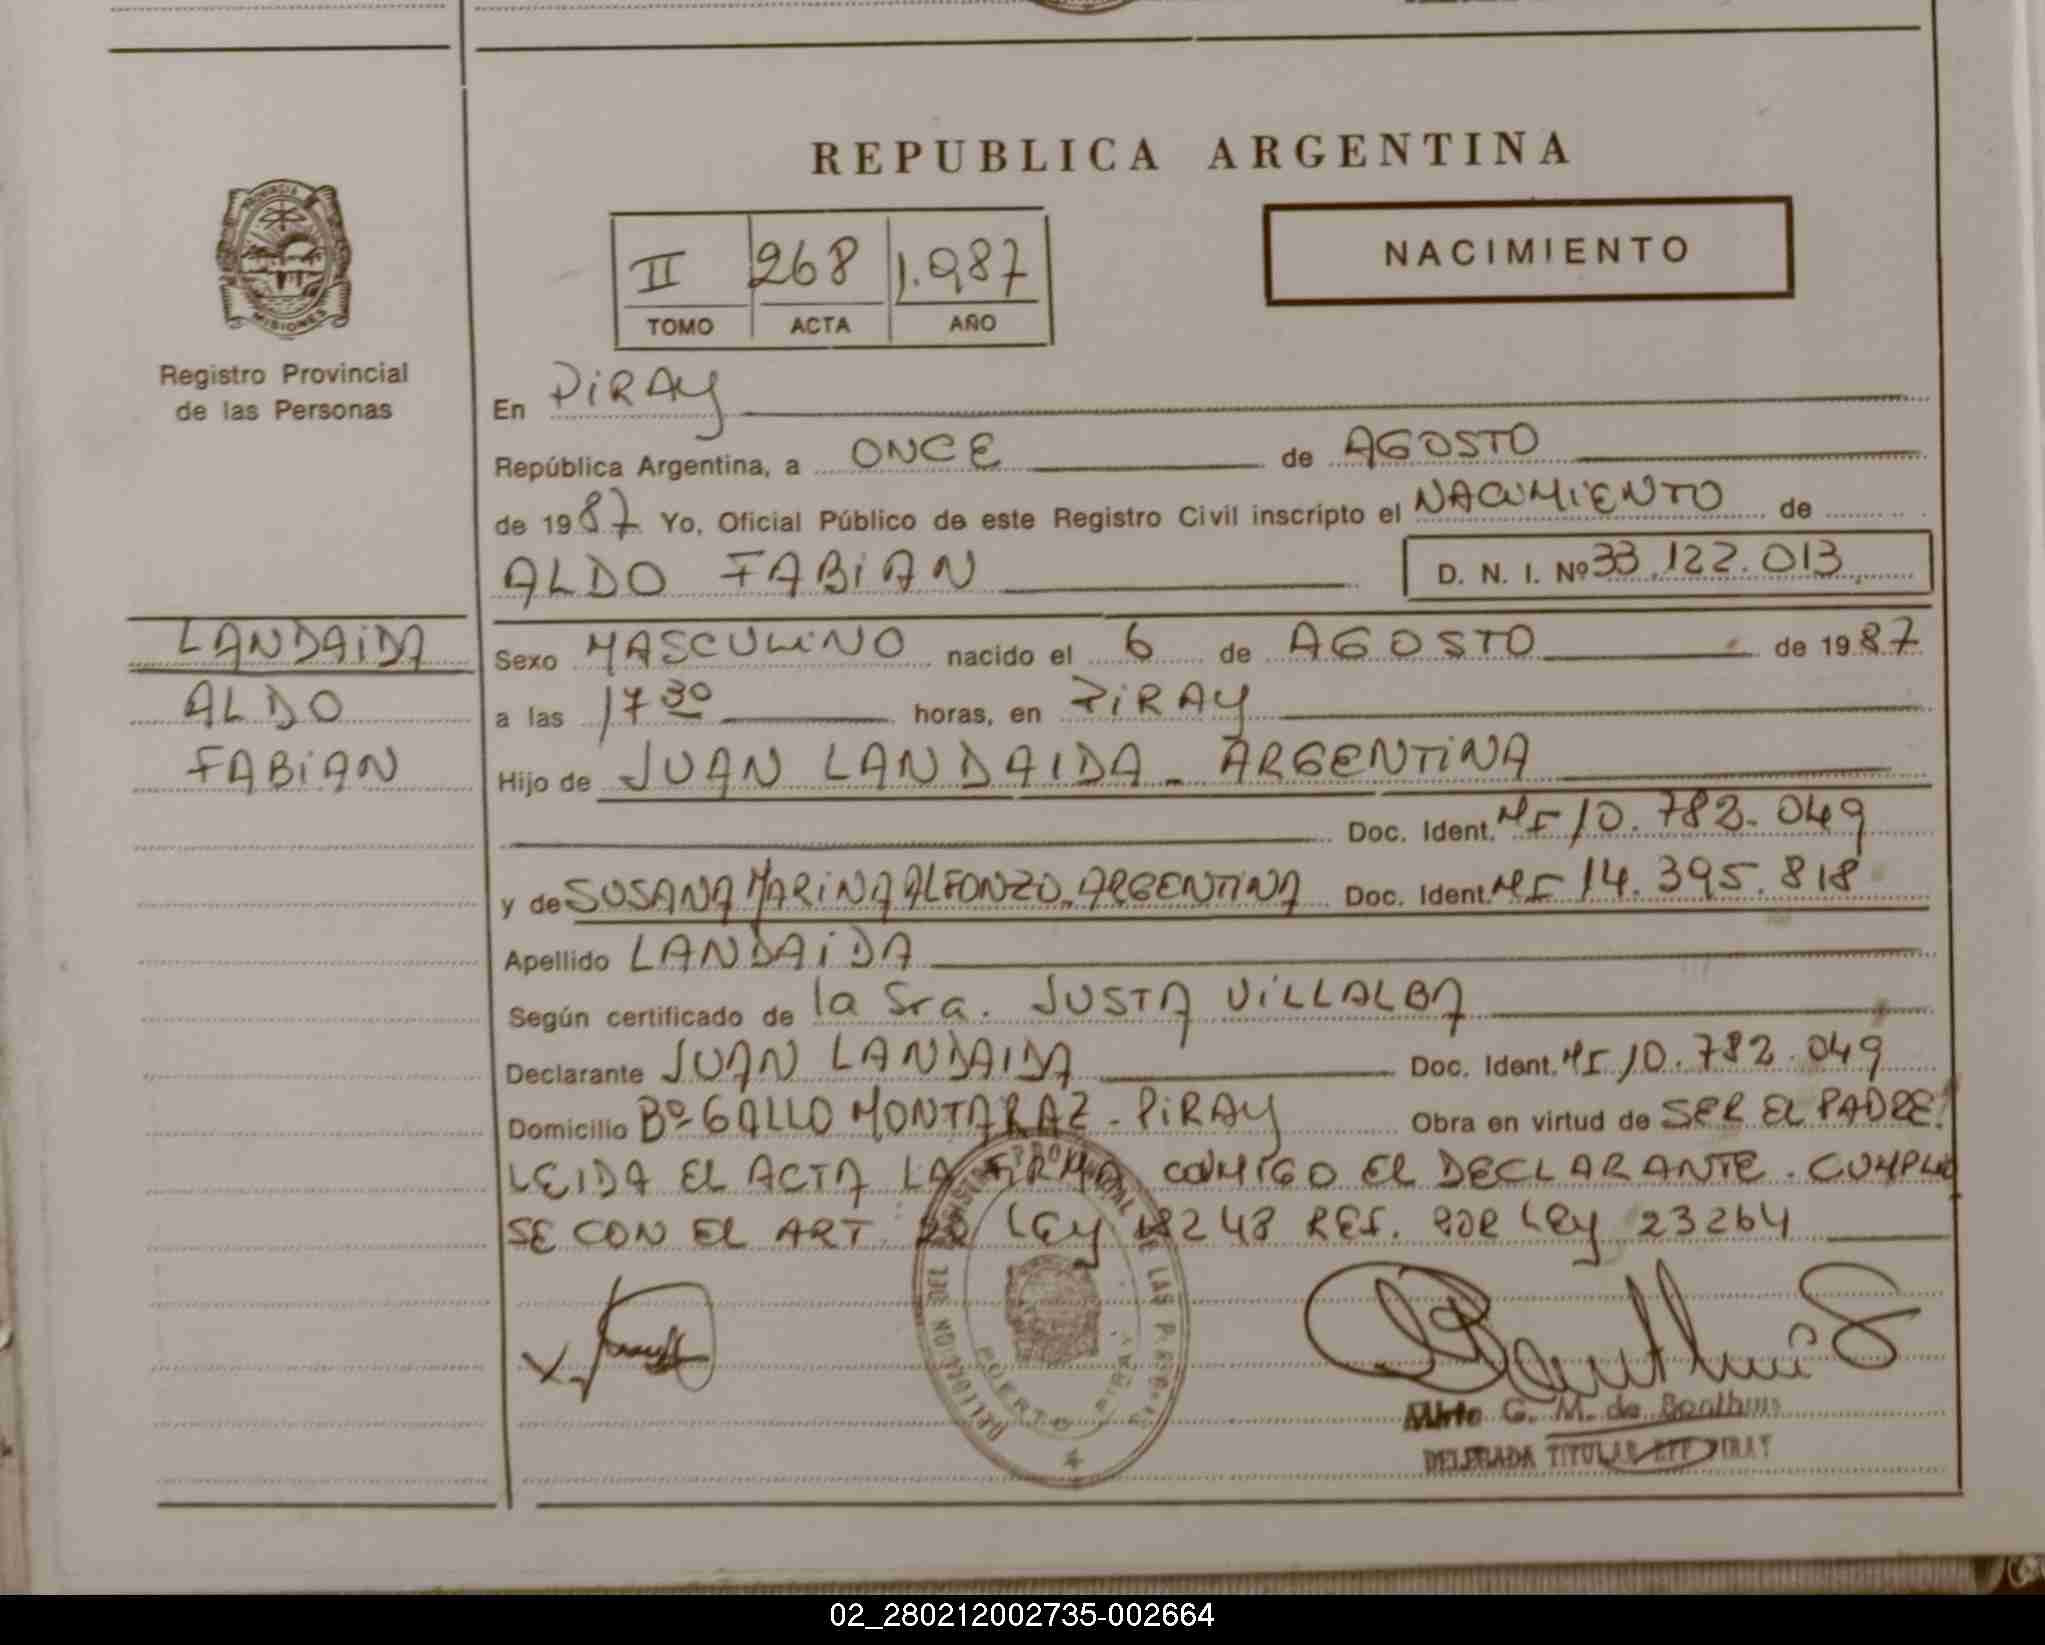 REPUBLICA ARGENTINA
PROVINCIA
MISIONES
Registro Provincial
de las Personas
II 268 1.987
TOMO ACTA AÑO
NACIMIENTO
En PiRAY
República Argentina, a ONCE de AGOSTO
de 1987 Yo, Oficial Público de este Registro Civil inscripto el NACIMIENTO de
ALDO FABiAN D. N. I. Nº 33.122.013
LANDAiDA
ALDO
FABiAN
Sexo MASCULiNO nacido el 6 de AGOSTO de 1987
a las 17 30 horas, en PiRAY
Hijo de JUAN LANDAIDA - ARGENTiNA
Doc. Ident. MI 10.782.049
y de SUSANA MARiNA ALFONZO. ARGENTINA Doc. Ident. MI 14.395.818
Apellido LANDAiDA
Según certificado de la Sra. JUSTA ViLLALBA
Declarante JUAN LANDAIDA Doc. Ident. MI 10.782.049
Domicilio Bº GALLO MONTARAZ - PiRAY Obra en virtud de SER EL PADRE.
LEIDA EL ACTA LA FIRMA CONMIGO EL DECLARANTE. CUMPLIO
SE CON EL ART. 20 LEY 18248 REF. POR LEY 23264
DELEGACION DEL REGISTRO PROVINCIAL DE LAS PERSONAS
PUERTO PIRAY
G. M. de
DELEGADA TITULAR PIRAY
02_280212002735-002664